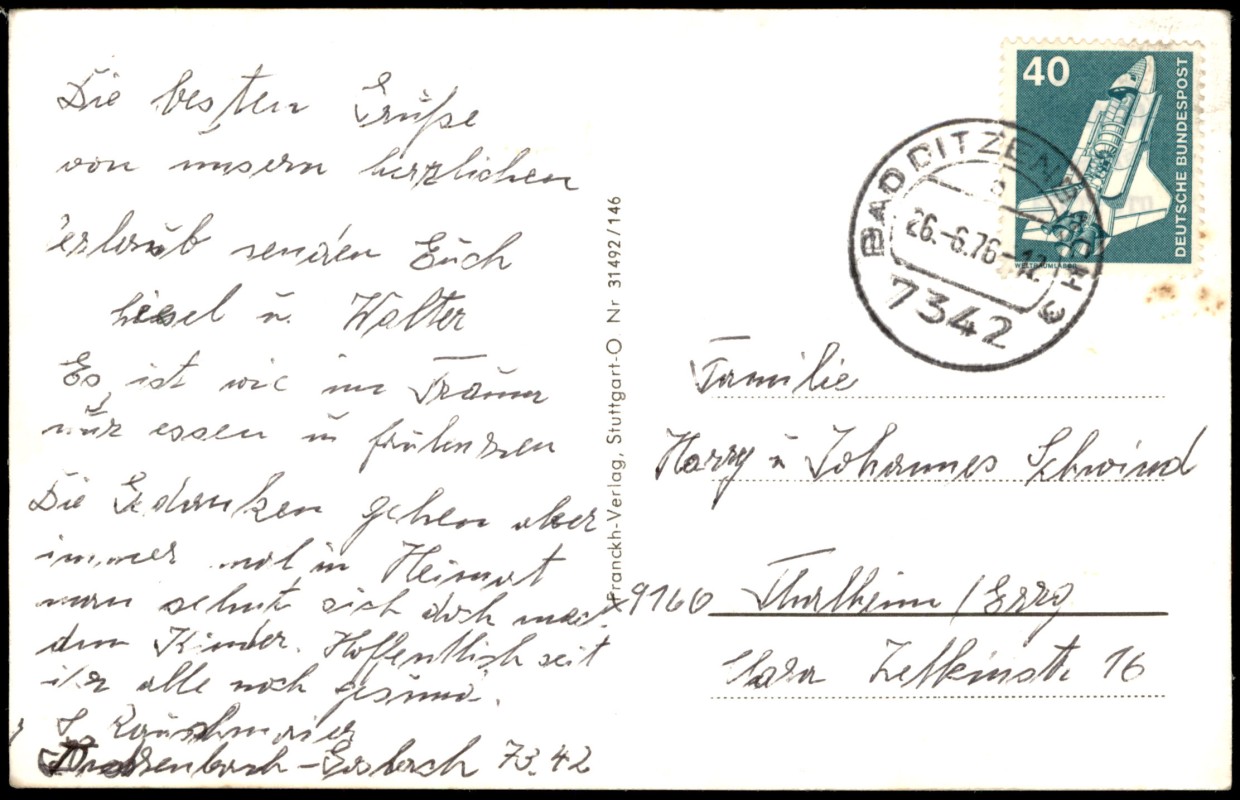 Die besten Grüße
von unsern herzlichen
Urlaub senden Euch
Liesel u. Walter
Es ist wie im Traum
nur essen u
Die Gedanken gehen aber
immer mal in Heimat
man sehnt sich doch nach
den Kinder. Hoffentlich seit
ihr alle noch gesund.
Franckh-Verlag, Stuttgart-O Nr 31492/146
40
DEUTSCHE BUNDESPOST
WELTRAUMLABOR
BAD DITZENBACH
26.-6.76
7342
Familie
Harry u Johannes Schwind
9160 Thalheim / Erzg
Clara Zetkinstr 16
7342